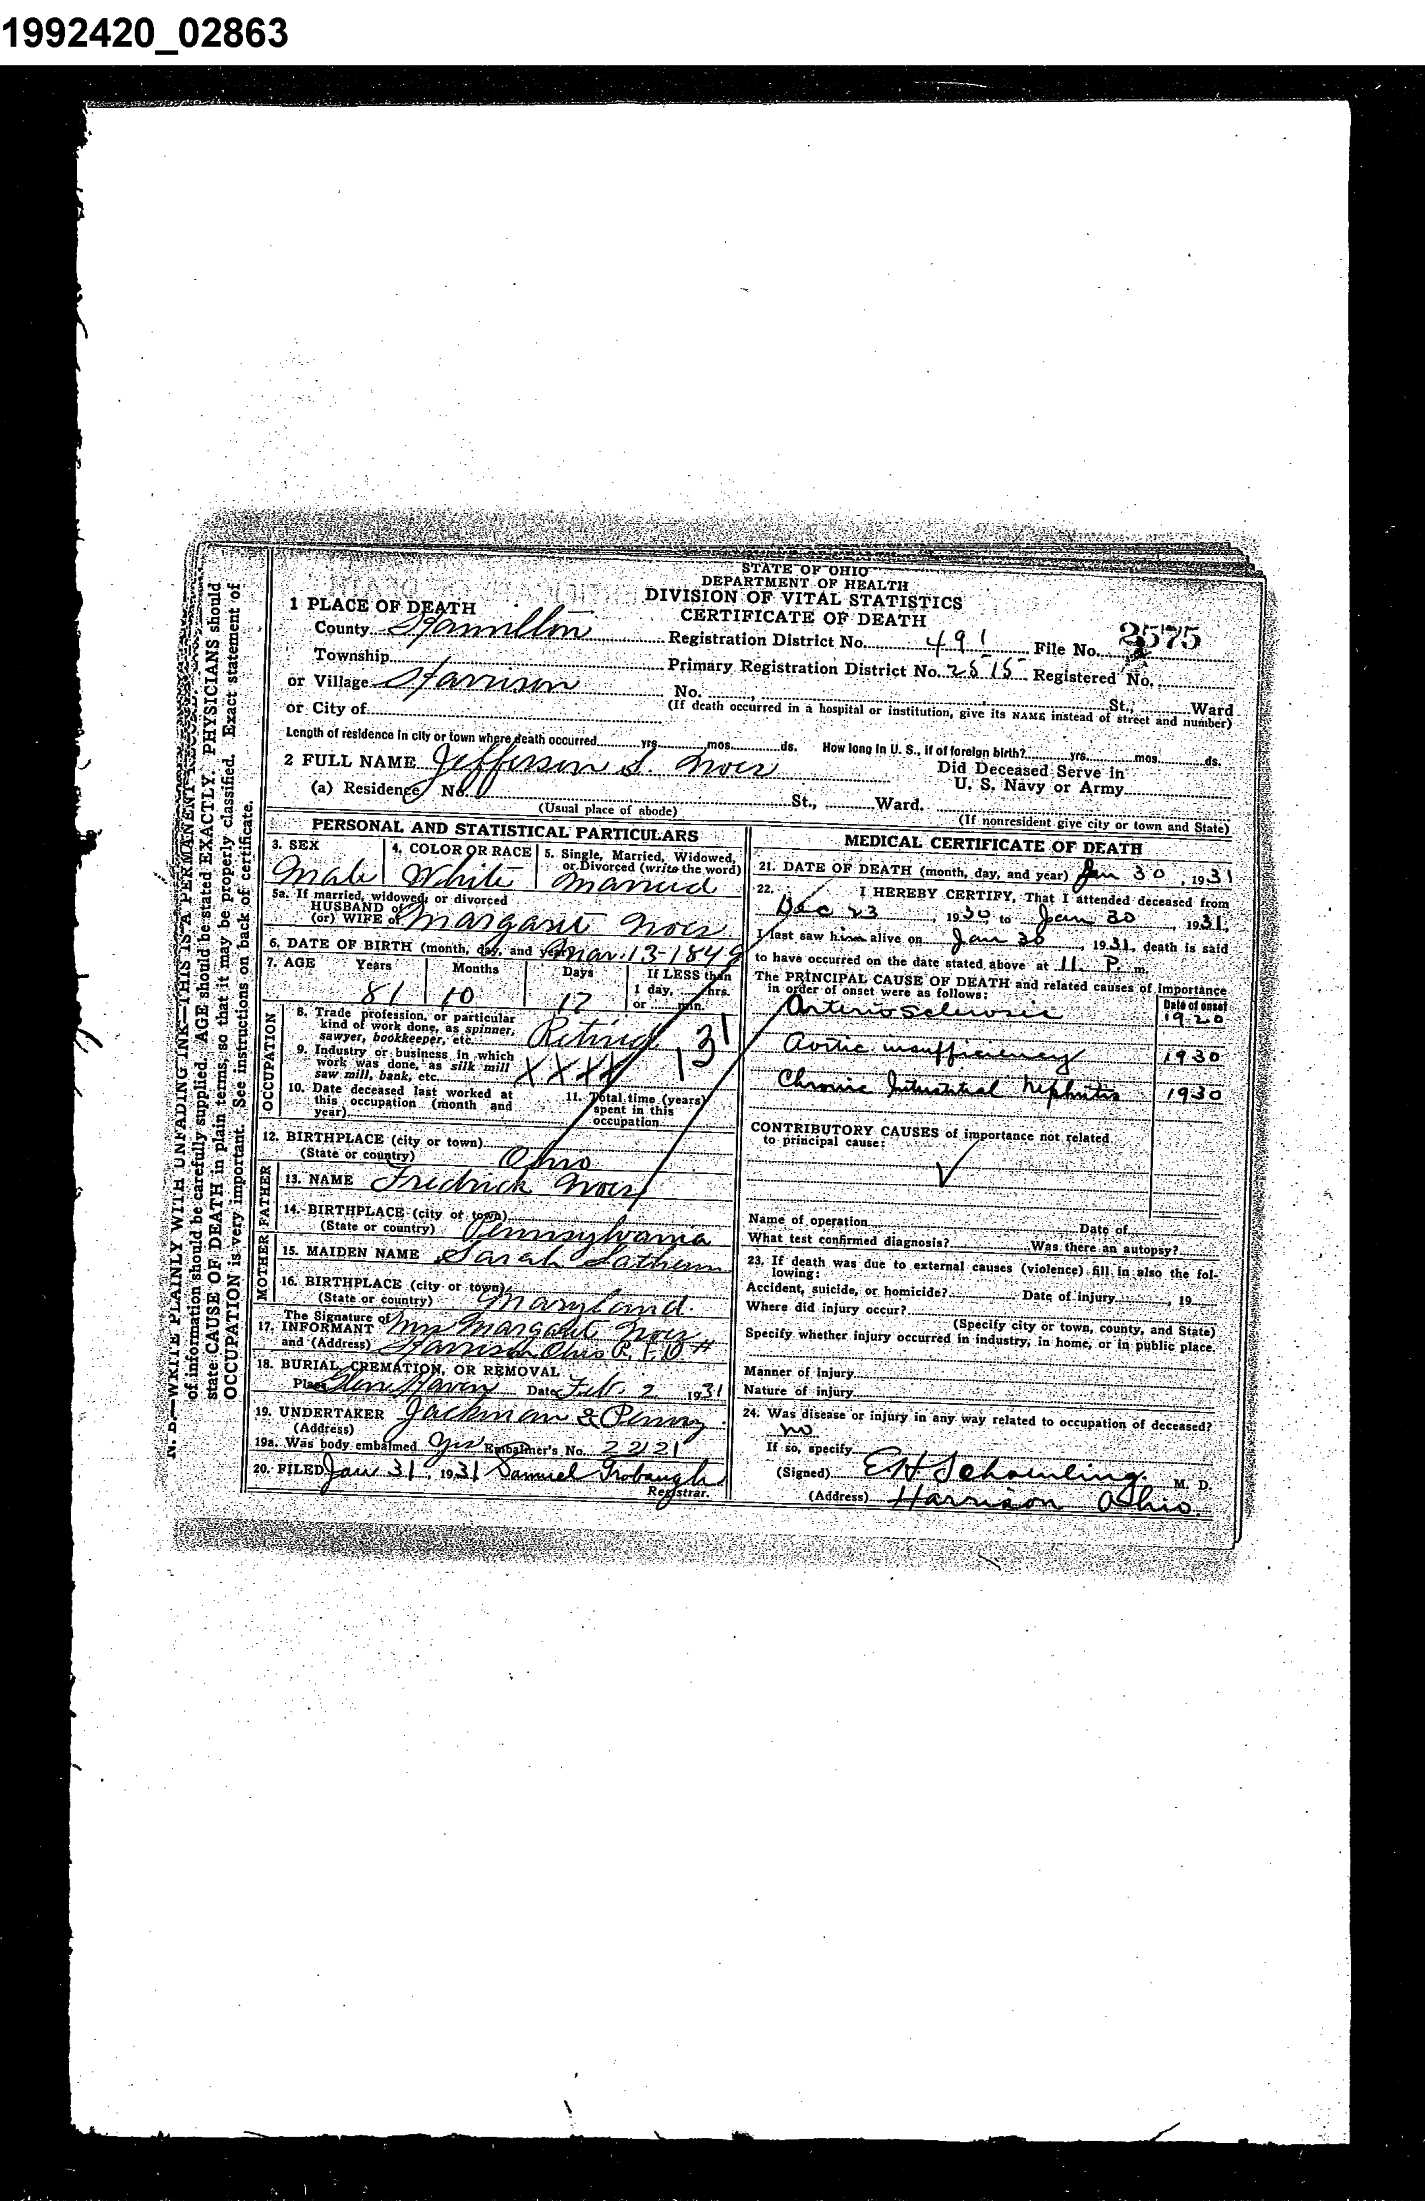 1992420_02863
STATE OF OHIO
DEPARTMENT OF HEALTH
DIVISION OF VITAL STATISTICS
CERTIFICATE OF DEATH
1 PLACE OF DEATH
County Hamilton Registration District No. 491 File No. 2575
Township Primary Registration District No. 2515 Registered No.
or Village Harrison No. St., Ward
or City of (If death occurred in a hospital or institution, give its NAME instead of street and number)
Length of residence in city or town where death occurred yrs. mos. ds. How long in U. S., if of foreign birth? yrs. mos. ds.
2 FULL NAME Jefferson S. Did Deceased Serve in
U. S. Navy or Army
(a) Residence No. St., Ward.
(Usual place of abode) (If nonresident give city or town and State)
PERSONAL AND STATISTICAL PARTICULARS
3. SEX 4. COLOR OR RACE 5. Single, Married, Widowed,
or Divorced (write the word)
Male White Married
5a. If married, widowed, or divorced
HUSBAND of
(or) WIFE of Margaret
6. DATE OF BIRTH (month, day, and year) Mar. 13-1849
7. AGE Years Months Days If LESS than
1 day, hrs.
81 10 17 or min.
OCCUPATION
8. Trade, profession, or particular
kind of work done, as spinner,
sawyer, bookkeeper, etc. Retired
9. Industry or business in which
work was done, as silk mill
saw mill, bank, etc. XXXX
131
10. Date deceased last worked at
this occupation (month and
year)
11. Total time (years)
spent in this
occupation
12. BIRTHPLACE (city or town)
(State or country) Ohio
FATHER
13. NAME Fredrick
14. BIRTHPLACE (city of town)
(State or country) Pennsylvania
MOTHER
15. MAIDEN NAME Sarah
16. BIRTHPLACE (city or town)
(State or country) Maryland.
The Signature of
17. INFORMANT Mrs Margaret
and (Address) Harrison Ohio R.F.D #
18. BURIAL, CREMATION, OR REMOVAL
Place Glen Haven Date Feb. 2 1931
19. UNDERTAKER Jackman & Penny
(Address)
19a. Was body embalmed Yes Embalmer's No. 2221
20. FILED Jan 31, 1931 Samuel Trobaugh
Registrar.
MEDICAL CERTIFICATE OF DEATH
21. DATE OF DEATH (month, day, and year) Jan 30, 1931
22. I HEREBY CERTIFY, That I attended deceased from
Dec 23, 1930, to Jan 30 1931,
I last saw him alive on Jan 30, 1931, death is said
to have occurred on the date stated above at 11 P. m.
The PRINCIPAL CAUSE OF DEATH and related causes of Importance
in order of onset were as follows:
Date of onset
Arterio Sclerosis 1920
Aortic insufficiency 1930
Chronic Interstitial Nephritis 1930
CONTRIBUTORY CAUSES of importance not related
to principal cause:
Name of operation Date of
What test confirmed diagnosis? Was there an autopsy?
23. If death was due to external causes (violence) fill in also the fol-
lowing:
Accident, suicide, or homicide? Date of injury 19
Where did injury occur?
(Specify city or town, county, and State)
Specify whether injury occurred in industry, in home, or in public place.
Manner of injury
Nature of injury
24. Was disease or injury in any way related to occupation of deceased?
no
If so, specify
(Signed) M. D.
(Address) Harrison Ohio.
N. B.—WRITE PLAINLY WITH UNFADING INK—THIS IS A PERMANENT
of information should be carefully supplied. AGE should be stated EXACTLY. PHYSICIANS should
state CAUSE OF DEATH in plain terms, so that it may be properly classified. Exact statement of
OCCUPATION is very important. See instructions on back of certificate.